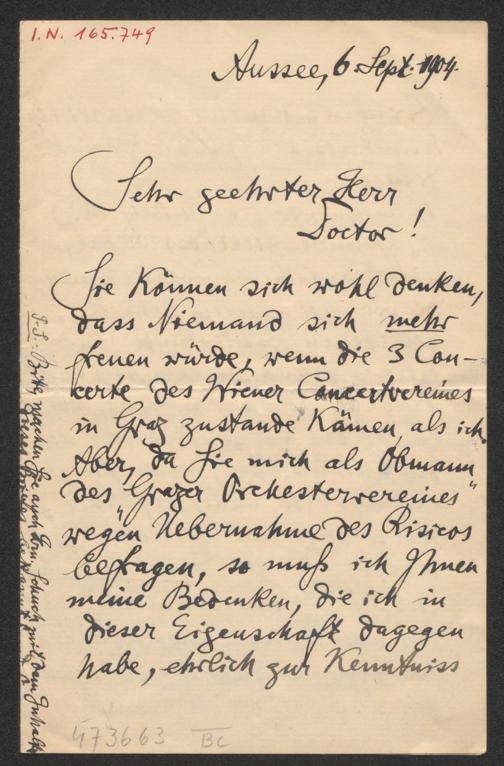 I.N. 165.749
Aussee, 6. Sept. 1904.
Sehr geehrter Herr
Doctor!
Sie können sich wohl denken,
dass Niemand sich mehr
freuen würde, wenn die 3 Con-
certe des Wiener Concertvereines
in Graz zustande kämen, als ich.
Aber, da Sie mich als Obmann
des „Grazer Orchestervereines“
wegen Uebernahme des Risicos
befragen, so muß ich Ihnen
meine Bedenken, die ich in
dieser Eigenschaft dagegen
habe, ehrlich zur Kenntniss
P.S.: Bitte, machen Sie auch Hrn. Schuch mit dem Inhalt
dieses Briefes bekannt
473663 BC